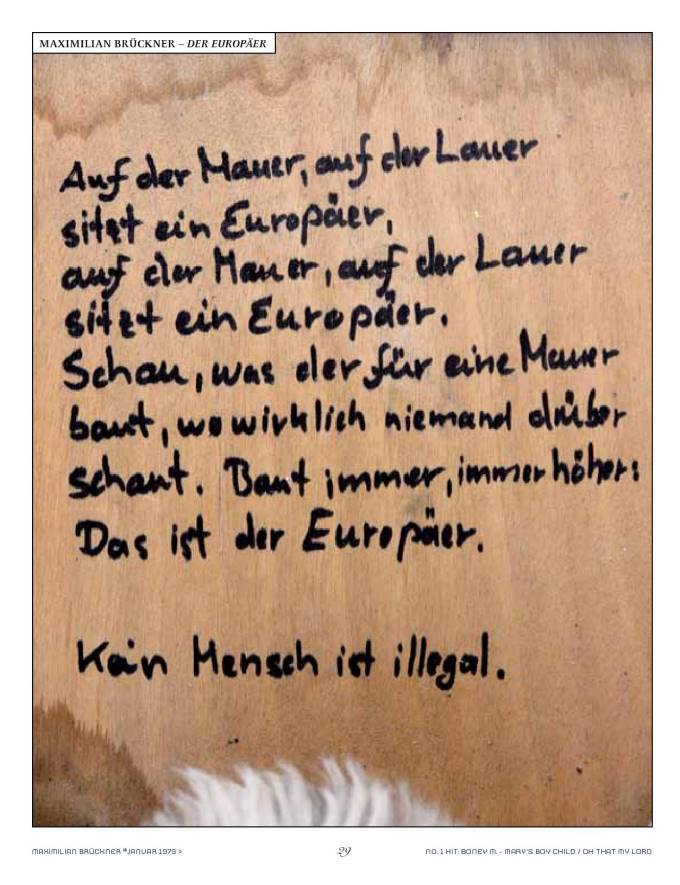 MAXIMILIAN BRÜCKNER – DER EUROPÄER
Auf der Mauer, auf der Lauer
sitzt ein Europäer,
auf der Mauer, auf der Lauer
sitzt ein Europäer.
Schau, was der für eine Mauer
baut, wo wirklich niemand drüber
schaut. Baut immer, immer höher:
Das ist der Europäer.
Kein Mensch ist illegal.
MAXIMILIAN BRÜCKNER *JANUAR 1979 >
29
NO. 1 HIT: BONEY M. - MARY'S BOY CHILD / OH THAT MY LORD